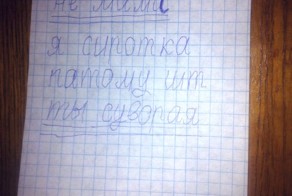 не мамс
я сиротка
патому шт
ты суворая